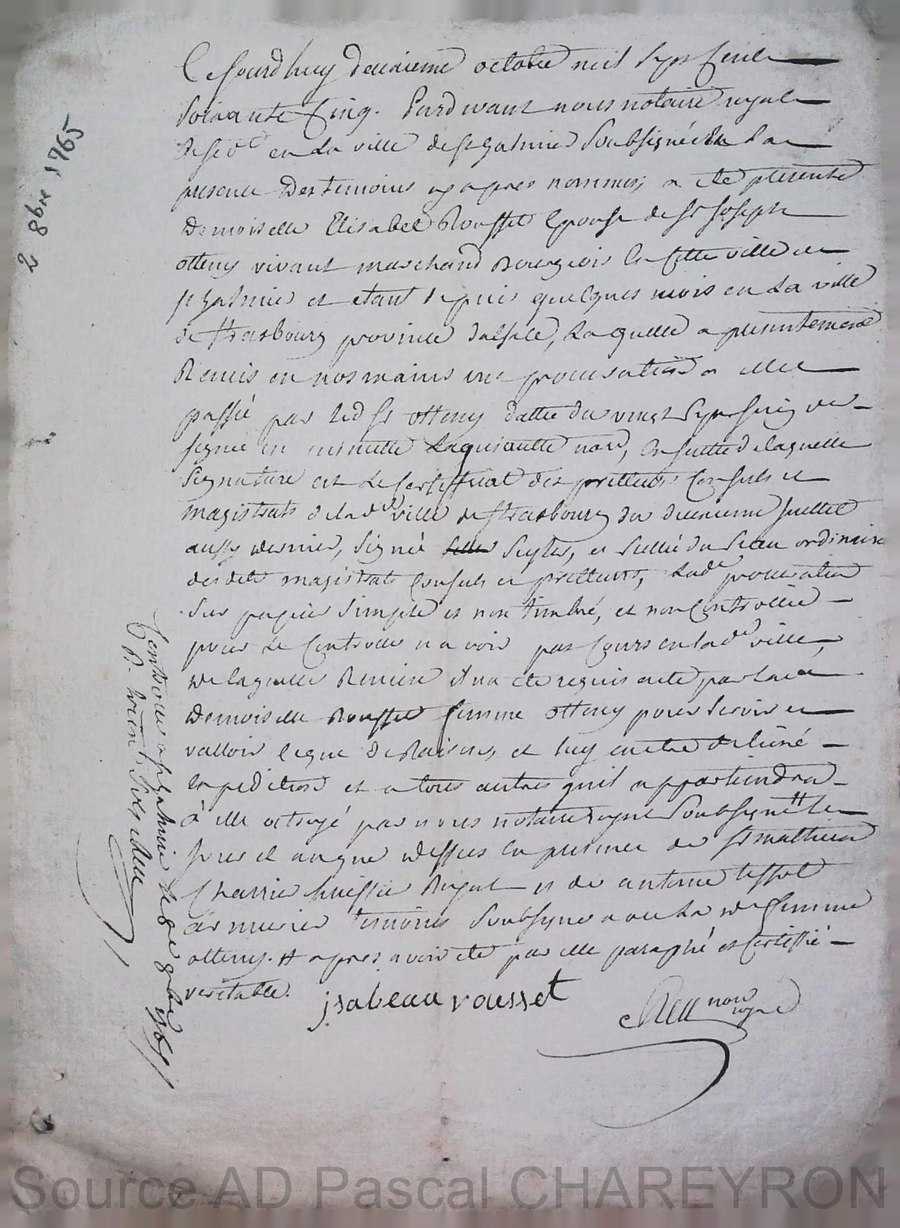 2 8bre 1765
Ce Jourdhuy deuxieme octobre mil sept Cent
soixante Cinq. Pardevant nous notaire royal
en la ville de st Galmier soubsigné & en la
presence des temoins cy apres nommes, a eté presente
Demoiselle Elisabel Rousset epouse de sr Joseph
otteny vivant marchand Bourgeois en cette ville de
st galmier et etant depuis quelques mois en La ville
de strasbourg province dalsace, Laquelle a presentement
Remis en nos mains une procuration a elle
passée par led sr otteny dattée du vingt sept juin
signée en minutte Laquiante nore, Ensuitte de laquelle
signature est Le Certifficat des pretteurs Consuls et
magistrats de lad ville de strasbourg du deuxieme Juillet
aussy dernier, signé et sellée du sceau ordinaire
des dits magistrats Consuls et pretteurs, Lade procuration
sur papier simple et non timbré, et non Controllée
pour Le Controlle n avoir pas Cours en lade ville,
de laquelle Remise il n a eté requis acte par lad
Demoiselle Rousset femme otteny pour servir et
valloir ce que de Raison, et luy en etre delivré
expedition et a tous autres quil appartiendra
à elle octroyé par nous notaire royal soubsigné # les
jour et an que dessus en presence de sr mathieu
Charrie huissier Royal et de antoine tissot
armurier temoins soubsignes avec La de femme
otteny. # apres avoir eté par elle paraphé et Certiffié
veritable.
jsabeau rousset
nore royal
Controllé a st galmier le 8e 8bre 1765
R. treize sols
Source AD Pascal CHAREYRON